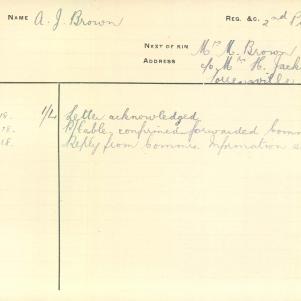 NAME A. J. Brown REG. &C. 2nd P
NEXT OF KIN Mrs M. Brown
ADDRESS c/o Mrs H. Jack
Townsville
18. 1/2 Letter acknowledged
18. Cable, confirmed forwarded Comm
18. Reply from Commrs. Information s